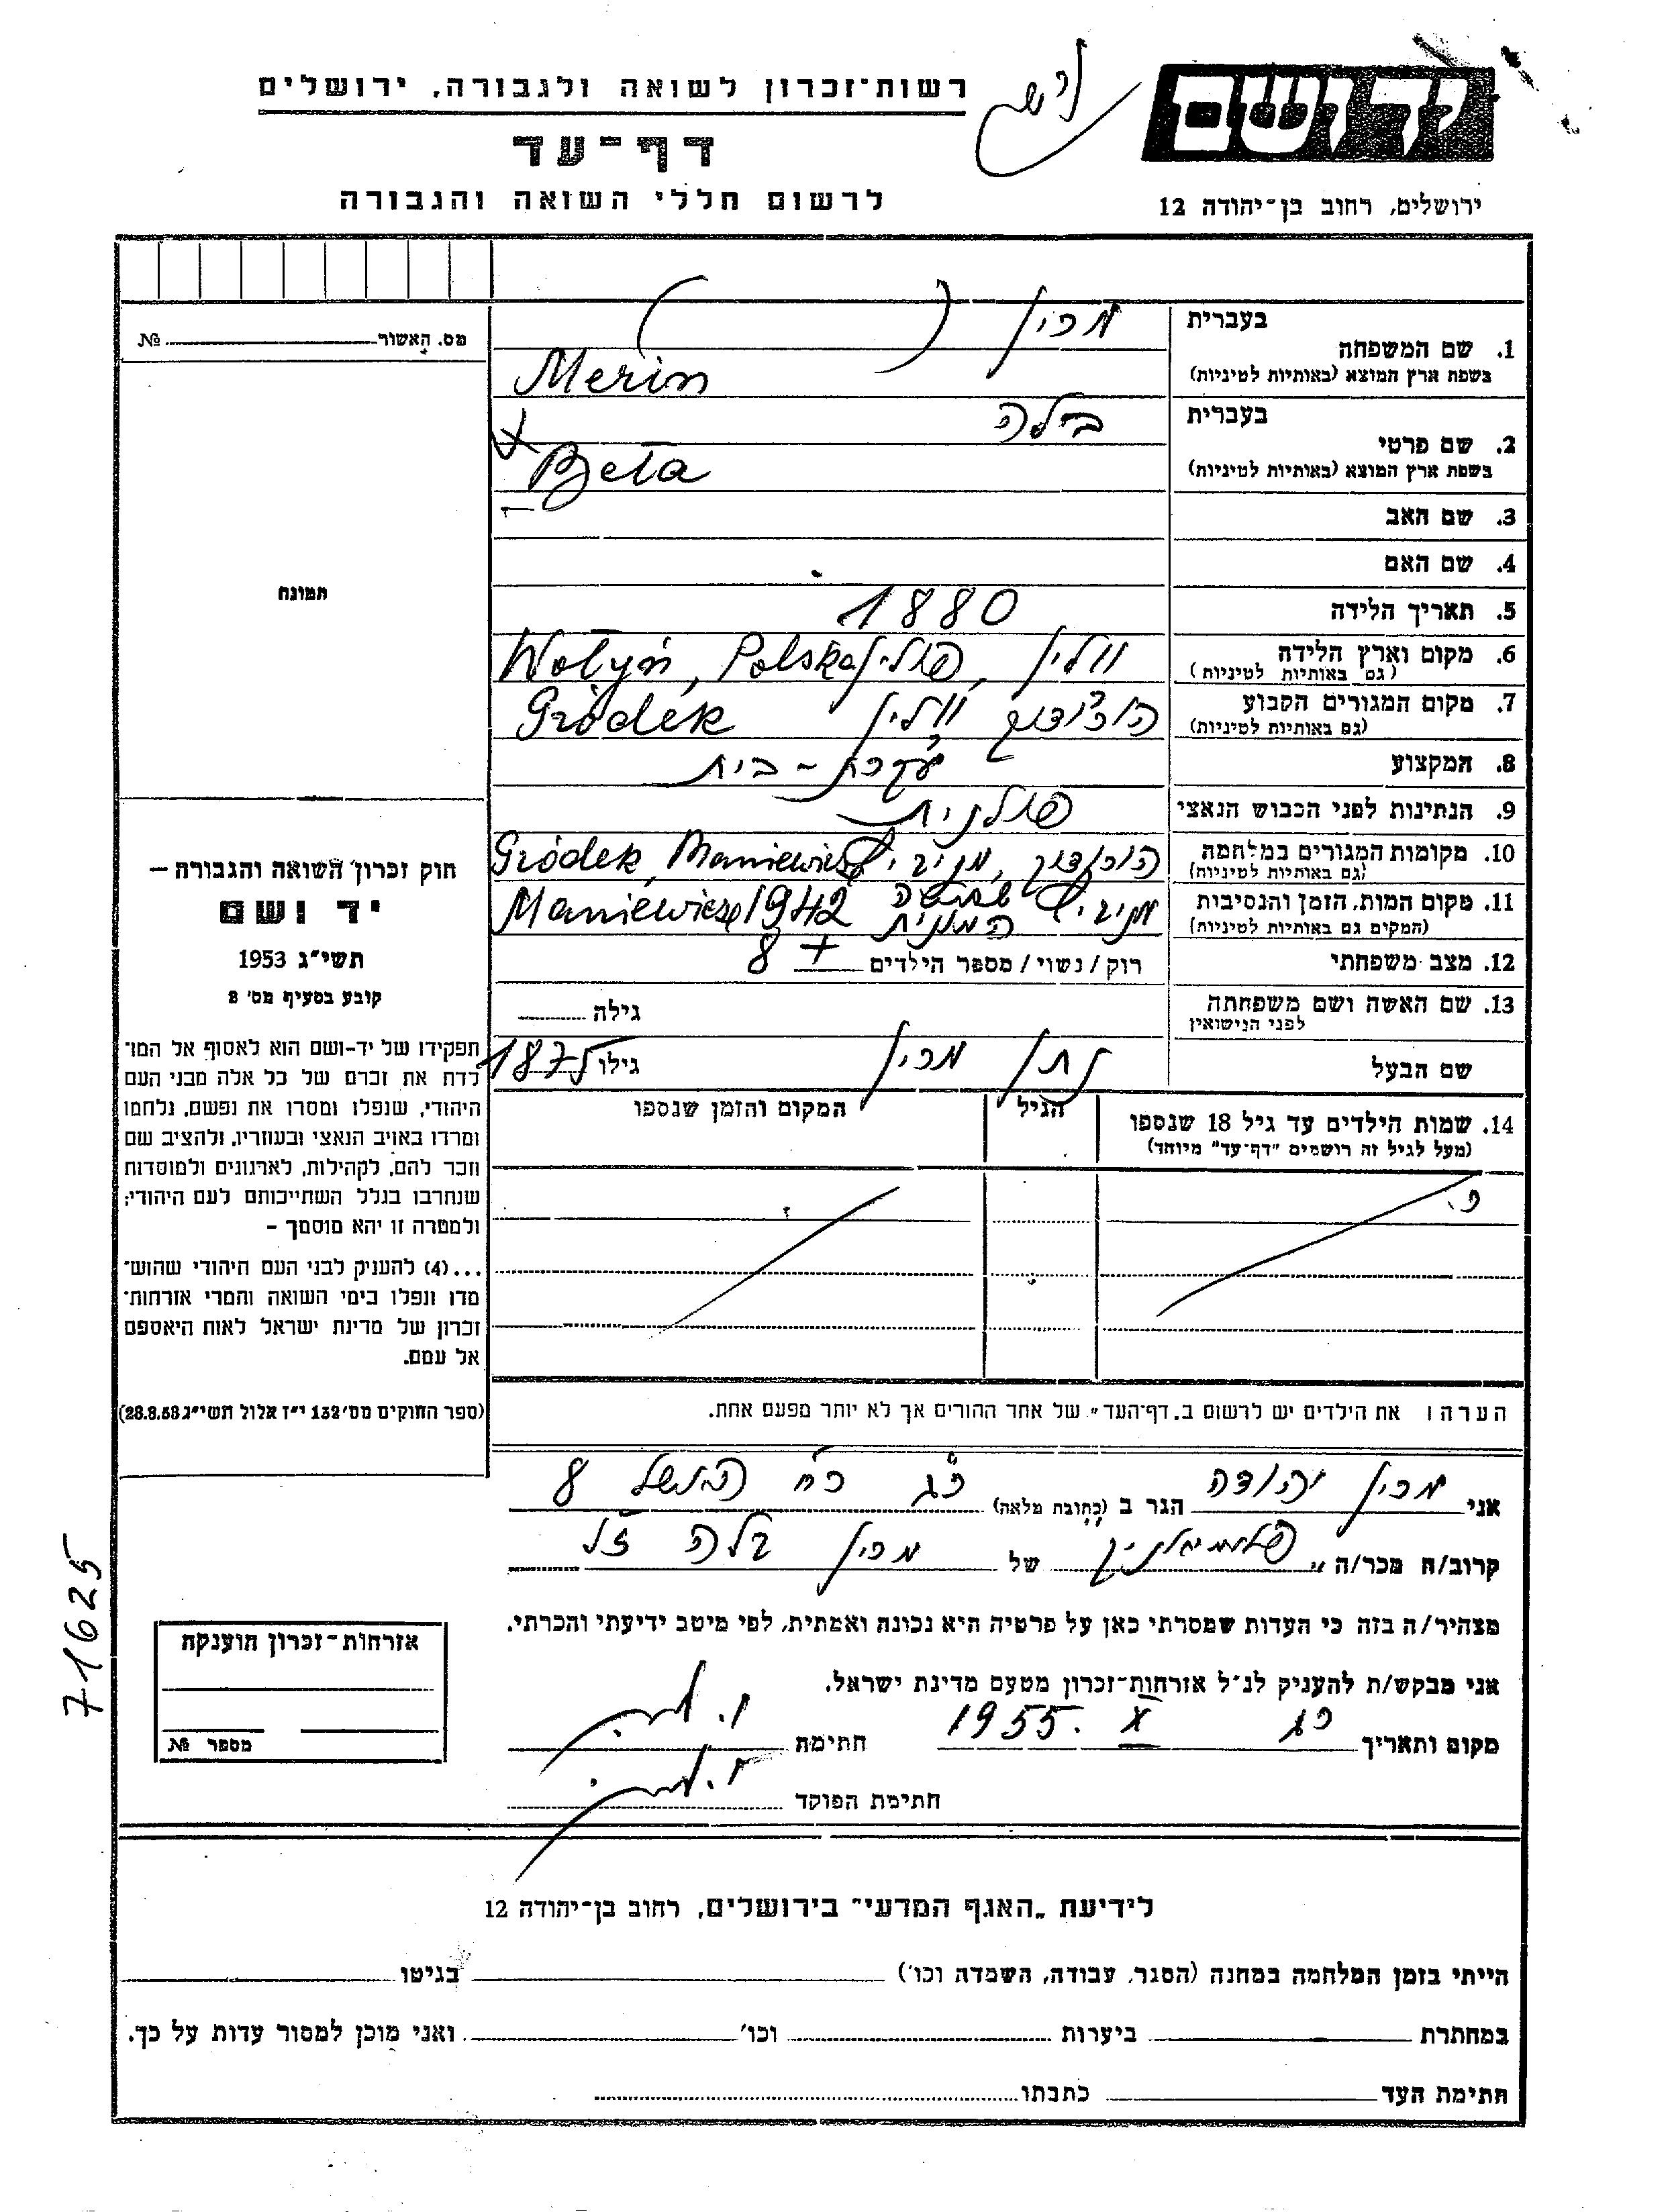 רשות־זכרון לשואה ולגבורה, ירושלים
יד ושם
דף־עד
לרשום חללי השואה והגבורה
ירושלים, רחוב בן־יהודה 12
מס. האשור № 
1. שם המשפחה בעברית מרין
בשפת ארץ המוצא (באותיות לטיניות) Merin
2. שם פרטי בעברית ביילה
בשפת ארץ המוצא (באותיות לטיניות) Beła
3. שם האב
4. שם האם
תמונה
5. תאריך הלידה 1880
6. מקום וארץ הלידה ווולין, פולין Wołyń, Polska
(גם באותיות לטיניות)
7. מקום המגורים הקבוע הורודוק ווולין Gródek
(גם באותיות לטיניות)
8. המקצוע עקרת-בית
9. הנתינות לפני הכבוש הנאצי פולנית
10. מקומות המגורים במלחמה הורודוק, מניביץ Gródek, Maniewicze
(גם באותיות לטיניות)
11. מקום המות, הזמן והנסיבות מניביץ המונית Maniewicze 1942
(המקום גם באותיות לטיניות)
12. מצב משפחתי רוק/נשוי/מספר הילדים + 8
13. שם האשה ושם משפחתה לפני הנישואין גילה
שם הבעל נתן מרין גילו 1875
14. שמות הילדים עד גיל 18 שנספו הגיל המקום והזמן שנספו
(מעל לגיל זה רושמים "דף־עד" מיוחד)
חוק זכרון השואה והגבורה —
יד ושם
תשי"ג 1953
קובע בסעיף מס' 2
תפקידו של יד-ושם הוא לאסוף אל המו־
לדת את זכרם של כל אלה מבני העם
היהודי, שנפלו ומסרו את נפשם, נלחמו
ומרדו באויב הנאצי ובעוזריו, ולהציב שם
וזכר להם, לקהילות, לארגונים ולמוסדות
שנחרבו בגלל השתייכותם לעם היהודי;
ולמטרה זו יהא מוסמך -
...(4) להעניק לבני העם היהודי שהוש־
מדו ונפלו בימי השואה והמרי אזרחות־
זכרון של מדינת ישראל לאות היאספם
אל עמם.
(ספר החוקים מס' 132 י"ז אלול תשי"ג 28.8.53)
הערה: את הילדים יש לרשום ב„דף־העד" של אחד ההורים אך לא יותר מפעם אחת.
אני מרין יהודה הגר ב (כתובת מלאה) רג רח 8
קרוב/ה מכר/ה של מרין בלה ז"ל
מצהיר/ה בזה כי העדות שמסרתי כאן על פרטיה היא נכונה ואמתית, לפי מיטב ידיעתי והכרתי.
אני מבקש/ת להעניק לנ"ל אזרחות־זכרון מטעם מדינת ישראל.
מקום ותאריך רג X 1955. חתימה
חתימת הפוקד
אזרחות־זכרון הוענקה
מספר №
71625
לידיעת „האגף המדעי" בירושלים, רחוב בן־יהודה 12
הייתי בזמן המלחמה במחנה (הסגר, עבודה, השמדה וכו') בגיטו
במחתרת ביערות וכו' ואני מוכן למסור עדות על כך.
חתימת העד כתבתו